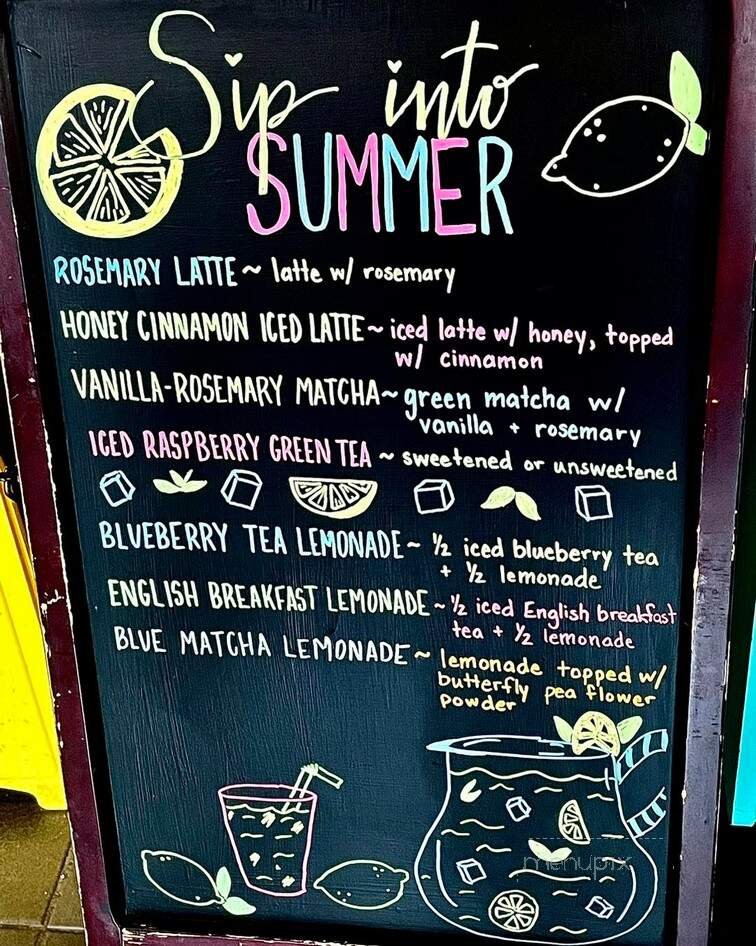 Sip into
SUMMER
ROSEMARY LATTE ~ latte w/ rosemary
HONEY CINNAMON ICED LATTE ~ iced latte w/ honey, topped
w/ cinnamon
VANILLA-ROSEMARY MATCHA ~ green matcha w/
vanilla + rosemary
ICED RASPBERRY GREEN TEA ~ sweetened or unsweetened
BLUEBERRY TEA LEMONADE ~ ½ iced blueberry tea
+ ½ lemonade
ENGLISH BREAKFAST LEMONADE ~ ½ iced English breakfast
tea + ½ lemonade
BLUE MATCHA LEMONADE ~ lemonade topped w/
butterfly pea flower
powder
menupix